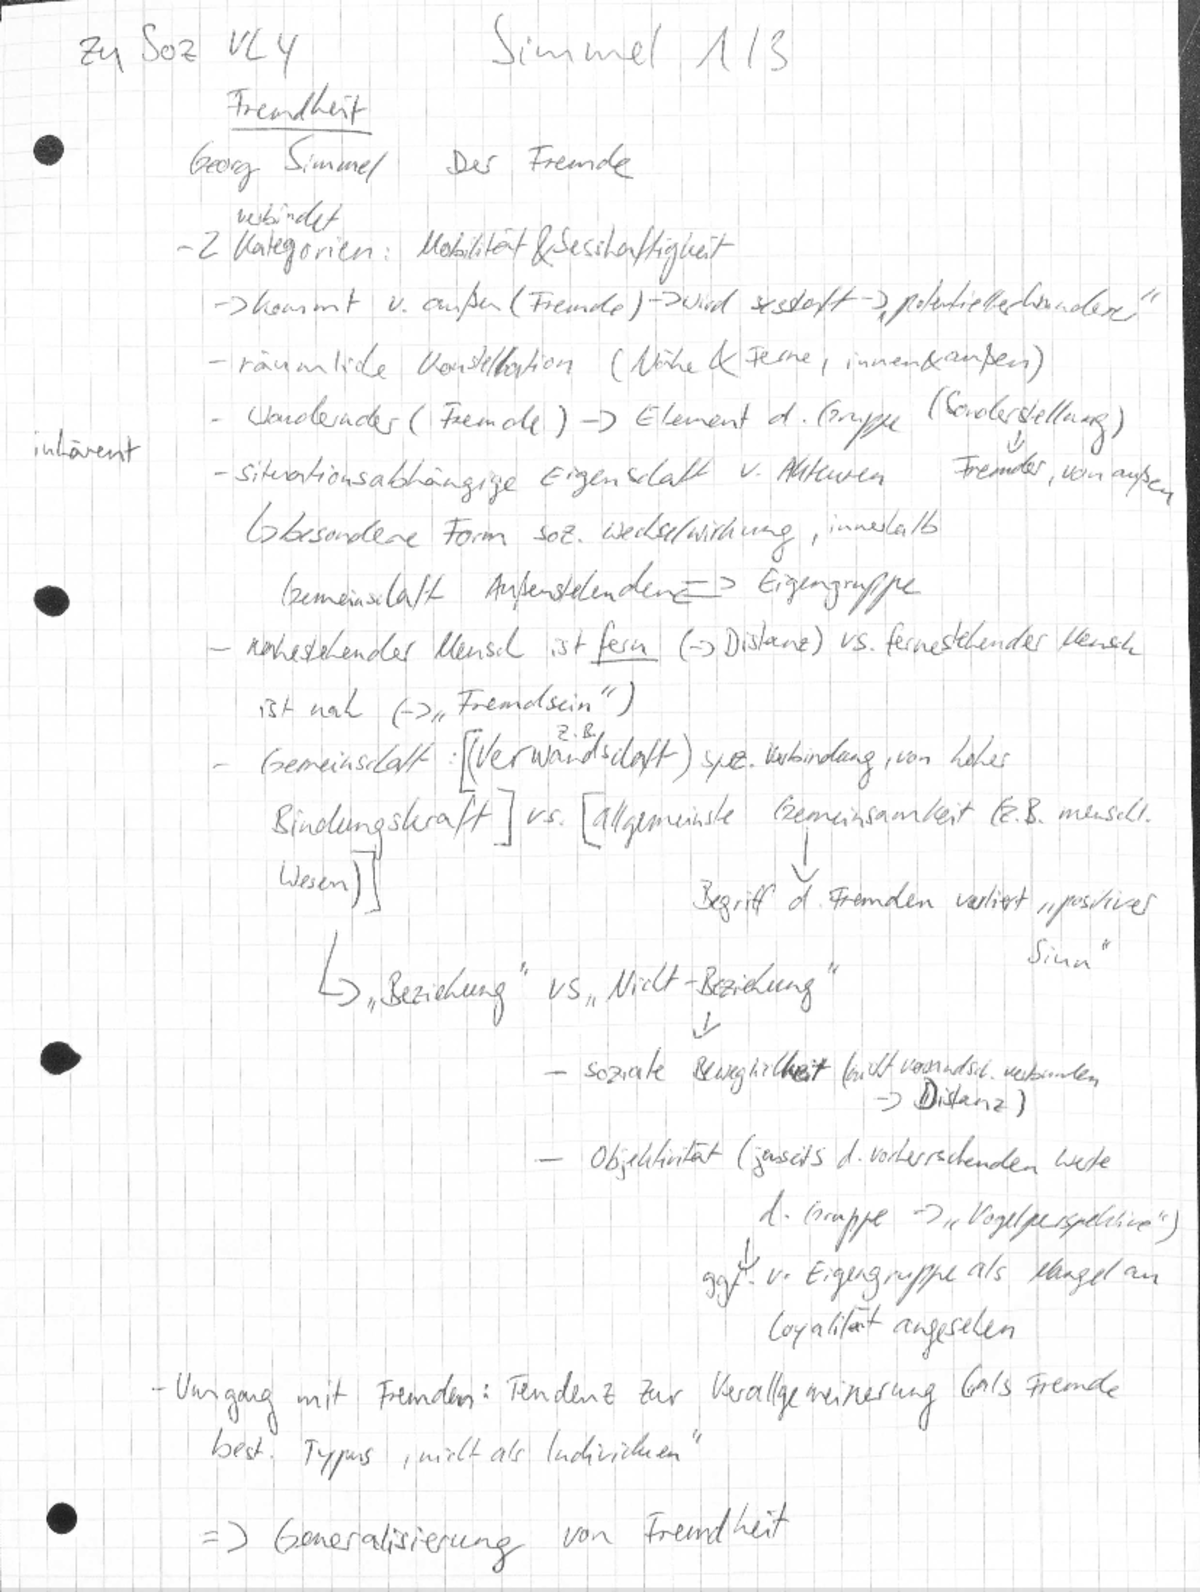 zu Soz VL4 Simmel 1/3
Fremdheit
Georg Simmel Der Fremde
verbindet
- 2 Kategorien: Mobilität & Sesshaftigkeit
-> kommt v. außen (Fremde) -> wird sesshaft -> „potentiell Wandernder"
- räumliche Konstellation (Nähe & Ferne, innen & außen)
- Wandernder (Fremde) -> Element d. Gruppe (Sonderstellung)
↓
inhärent
- situationsabhängige Eigenschaft v. Akteuren Fremder, von außen
↳ besondere Form soz. Wechselwirkung, innerhalb
Gemeinschaft Außenstehenden => Eigengruppe
- nahestehender Mensch ist fern (-> Distanz) vs. fernestehender Mensch
ist nah (-> „Fremdsein")
z.B.
- Gemeinschaft: [(Verwandschaft) spez. Verbindung, von hoher
Bindungskraft] vs. [allgemeinste Gemeinsamkeit (z.B. menschl.
Wesen)]
↓
Begriff d. Fremden verliert „positiven
Sinn"
↳ „Beziehung" vs „Nicht-Beziehung"
↓
- soziale Beweglichkeit (nicht verwandsch. verbunden
-> Distanz)
- Objektivität (jenseits d. vorherrschenden Werte
d. Gruppe -> „Vogelperspektive")
↓
ggf. v. Eigengruppe als Mangel an
Loyalität angesehen
- Umgang mit Fremden: Tendenz zur Verallgemeinerung als Fremde
best. Typus, nicht als Individuen"
=> Generalisierung von Fremdheit